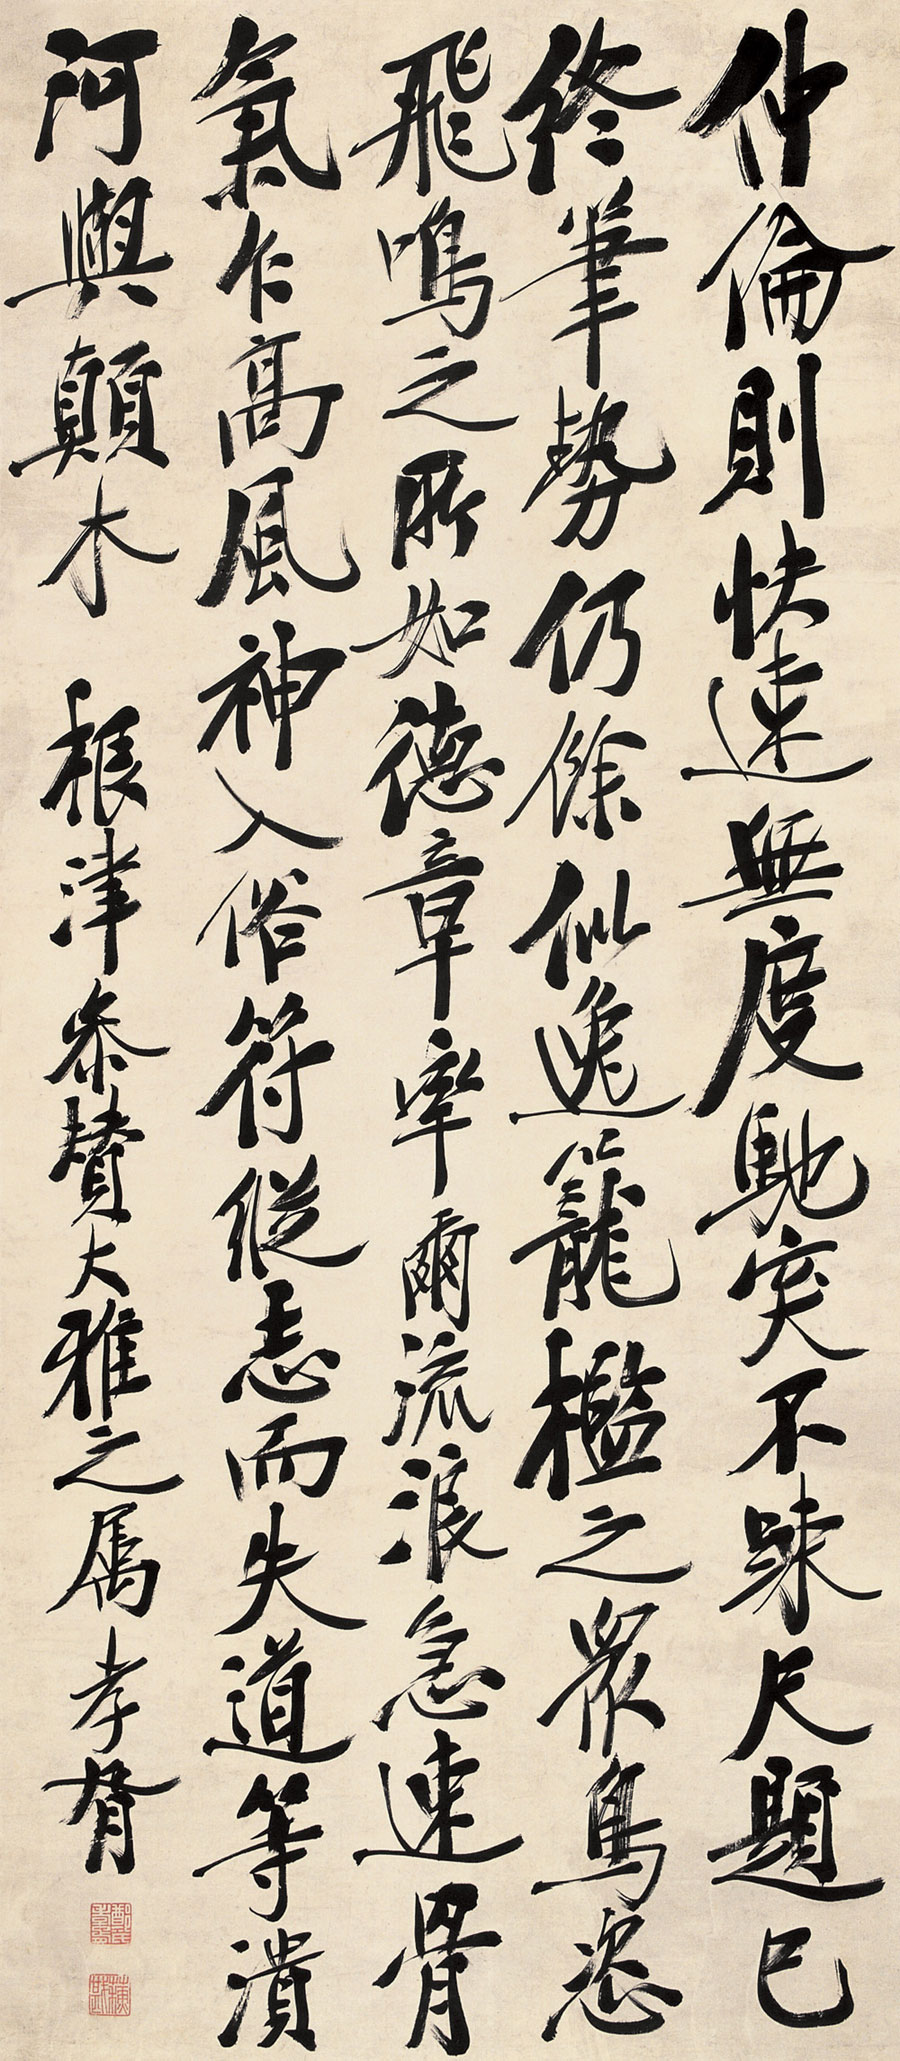 仲倫則快速無度馳突不疎尺題已
終筆勢仍餘似逸籠檻之眾鳥恣
飛鳴之所如德章率爾流浪急速骨
氣乍高風神入俗符縱志而失道等潰
河與顛木 根津參贊大雅之屬 孝胥
鄭氏孝胥
蘇戡